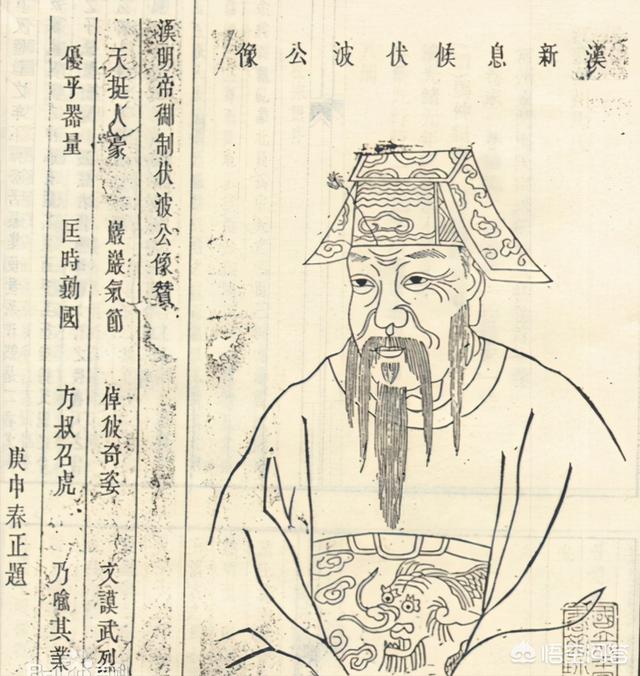 漢新息候伏波公像
漢明帝御制伏波公像贊
天挺人豪 巖巖氣節 倬彼奇姿 文謨武烈
優乎器量 匡時勤國 方叔召虎 乃喻其業
庚申春正題
悟空问答